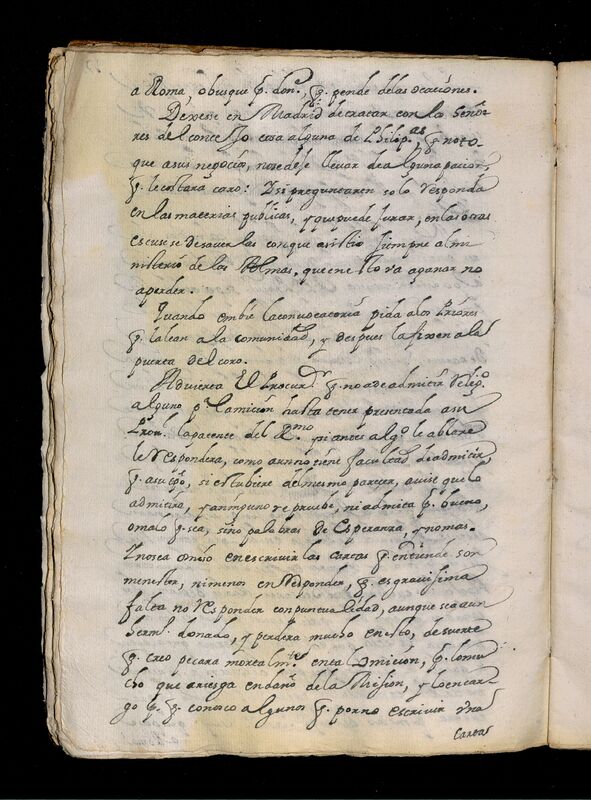 a Roma, o busque p.ª don.e, q. pende delas ocaciones.
Dexese en Madrid detratar con los Seño-
res del concejo cosa alguna de Philip.as, q. noto-
que asus negocios, nosedeje llevar de alguna pacion
q. le costara caro: Y si preguntaren solo responda
en las materias publicas, y que puede jurar, en las otras
escusese desaverlas conque asistio siempre al mi
nisterio de las Almas, que en esto va aganar no
aperder.
Quando embie la convocatoria pida alos Priores
q. la lean ala comunidad, y despues la fixen ala
puerta del coro.
Advierta El Procur.or q. no a de admitir Relig.o
alguno p.a la micion hasta tener presentada asu
Prov.l la patente del R.mo si antes alg.o le ablare
le respondera, como aun no tiene facultad de admitir
q. asu tp̃o, si estubiere del mesmo parecer, avise que lo
admitira, y aninguno reprueve, ni admita p.r bueno,
o malo q. sea, sino palabras de Esperanza, y nomas.
Y nosea omiso en escrivir las cartas q. entiende son
menester, ni menos en responder, q. es gravisima
falta no responder con puntualidad, aunque sea aun
herm.o donado, y perdera mucho en esto, desuerte
q. creo pecara mortalm.te en tal omicion, p.r lomu
cho que ariesga en daño de la Mision, y lo encar-
go p.r q. conosco algunos q. por no escrivir una
Carta